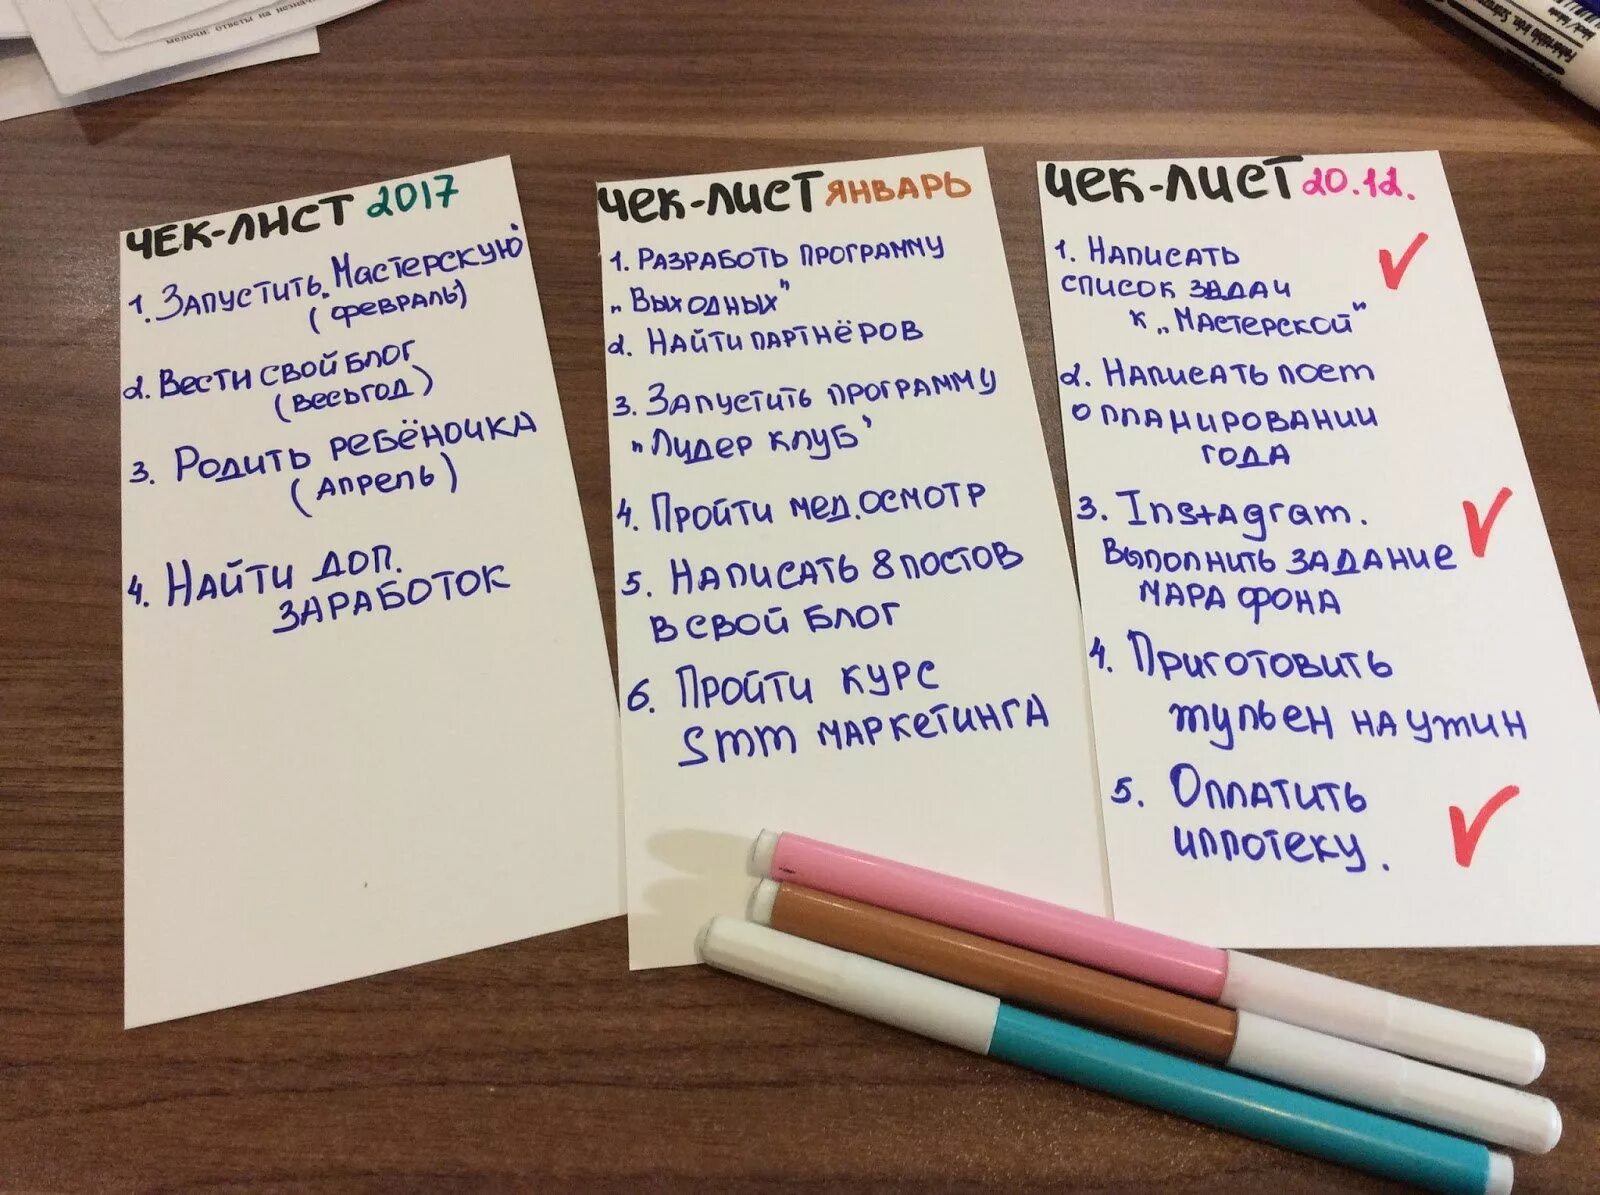 ЧЕК-ЛИСТ 2017
1. Запустить „Мастерскую"
(февраль)
2. Вести свой блог
(весь год)
3. Родить ребёночка
(апрель)
4. Найти доп.
заработок
ЧЕК-ЛИСТ ЯНВАРЬ
1. Разработь программу
„Выходных"
2. Найти партнёров
3. Запустить программу
„Лидер клуб"
4. Пройти мед. осмотр
5. Написать 8 постов
в свой блог
6. Пройти курс
Smm маркетинга
ЧЕК-ЛИСТ 20.12.
1. Написать
список задач
к „Мастерской"
2. Написать пост
о планировании
года
3. Instagram.
Выполнить задание
марафона
4. Приготовить
жульен на ужин
5. Оплатить
ипотеку.